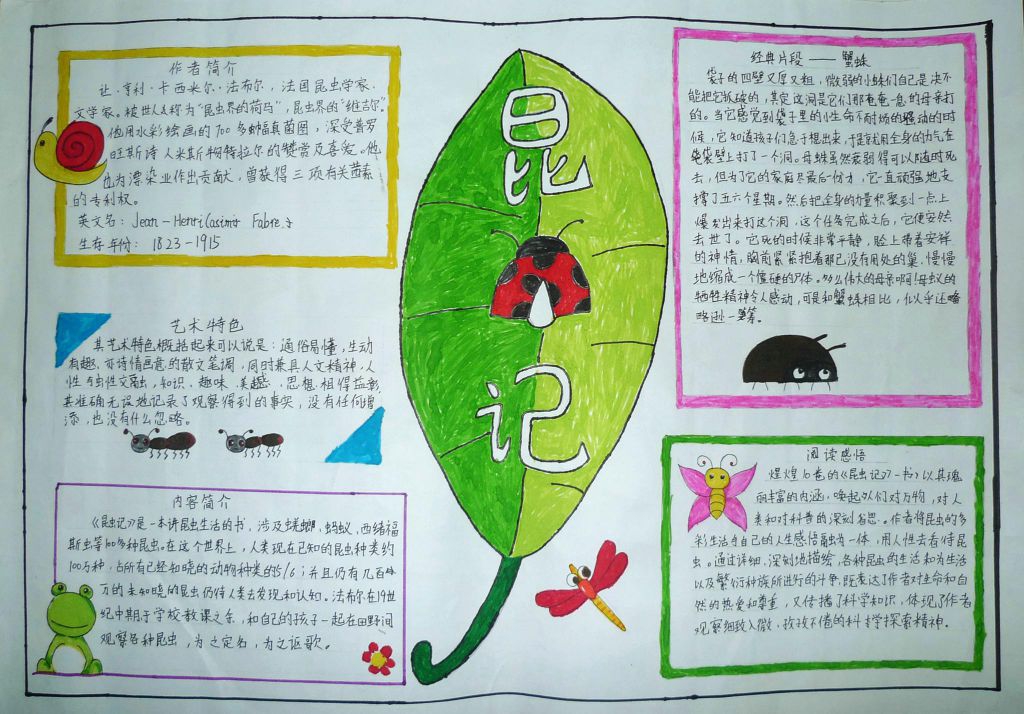 作者简介
让·亨利·卡西米尔·法布尔，法国昆虫学家.
文学家。被世人称为"昆虫界的荷马"，昆虫界的"维吉尔"。
他用水彩绘画的700多种真菌图，深受普罗
旺斯诗人米斯特拉尔的赞赏及喜爱。他
也为漂染业作出贡献，曾获得三项有关茜素
的专利权。
英文名：Jean-Henri Casimir Fabre
生存年份：1823-1915
艺术特色
其艺术特色概括起来可以说是：通俗易懂，生动
有趣，亦诗情画意的散文笔调，同时兼具人文精神，人
性与虫性交融，知识、趣味、美感、思想相得益彰，
其准确无误地记录了观察得到的事实，没有任何增
添，也没有什么忽略。
内容简介
《昆虫记》是一本讲昆虫生活的书，涉及蜣螂、蚂蚁、西绪福
斯虫等100多种昆虫。在这个世界上，人类现在已知的昆虫种类约
100万种，占所有已经知晓的动物种类的5/6；并且仍有几百
万的未知晓的昆虫仍待人类去发现和认知。法布尔在19世
纪中期于学校教课之余，和自己的孩子一起在田野间
观察各种昆虫，为之定名，为之讴歌。
昆
虫
记
经典片段——蟹蛛
袋子的四壁又厚又粗，微弱的小蛛们自己是决不
能把它抓破的，其实这洞是它们那奄奄一息的母亲打
的。当它感觉到袋子里的小生命不耐烦的骚动的时
候，它知道孩子们急于想出来，于是就用全身的力气在
袋壁上打了一个洞。母蛛虽然衰弱得可以随时死
去，但为了它的家庭尽最后何才，它一直顽强地支
撑了五六个星期。然后把全身的力量积聚到一点上
爆发出来打这个洞，这个任务完成之后，它便安然
去世了。它死的时候非常平静，脸上带着安祥
的神情，胸前紧紧抱着那已没有用处的巢，慢慢
地缩成一个僵硬的尸体。多么伟大的母亲啊！母蚁的
牺牲精神令人感动，可是和蟹蛛相比，似乎还略
略逊一筹。
阅读感悟
煌煌10卷的《昆虫记》一书，以其瑰
丽丰富的内涵，唤起人们对万物，对人
类和对科普的深刻省思。作者将昆虫的多
彩生活与自己的人生感悟融为一体，用人性去看待昆
虫。通过详细，深刻地描绘，各种昆虫的生活和为生活
以及繁衍种族所进行的斗争，既表达了作者对生命和自
然的热爱和尊重，又传播了科学知识，体现了作者
观察细致入微，孜孜不倦的科学探索精神。